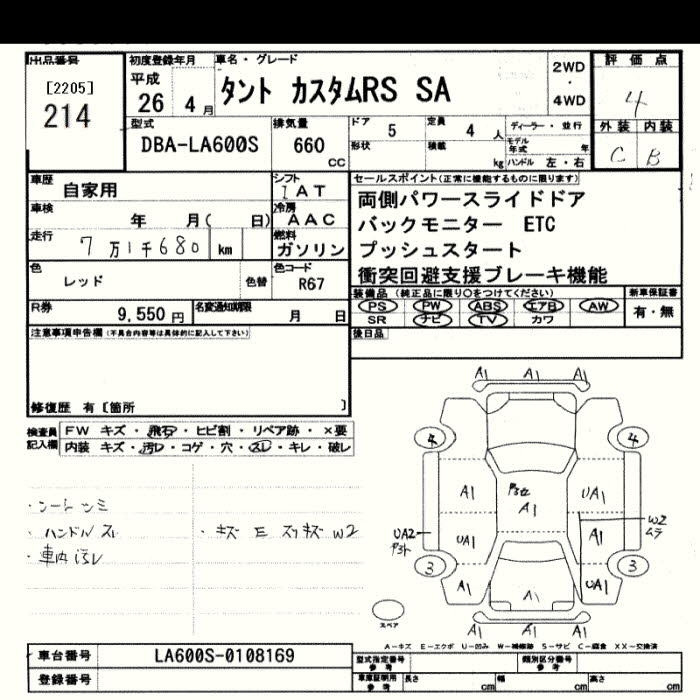 出品番号
[2205]
214
初度登録年月
平成
26 4 月
車名・グレード
タント カスタムRS SA
2WD
・
4WD
評価点
4
外装 内装
C B
型式
DBA-LA600S
排気量
660
cc
ドア 5
定員 4 人
形状
積載 kg
ディーラー・並行
モデル年式 年
ハンドル 左・右
車歴
自家用
シフト
IAT
車検
年 月( 日)
冷房
AAC
走行
7万1千680 km
燃料
ガソリン
色
レッド
色替
色コード
R67
R券
9,550 円
名変通知期限
月 日
セールスポイント(正常に機能するものに限ります)
両側パワースライドドア
バックモニター ETC
プッシュスタート
衝突回避支援ブレーキ機能
装備品 (純正品に限り○をつけてください)
PS PW ABS エアB AW
SR ナビ TV カワ
新車保証書
有・無
後日品
注意事項申告欄(不具合内容等は具体的に記入して下さい)
修復歴 有〔箇所 〕
検査員
記入欄
FW キズ・飛石・ヒビ割・リペア跡・×要
内装 キズ・汚レ・コゲ・穴・スレ・キレ・破レ
・シートシミ
・ハンドルスレ
・車内汚レ
・キズ E スリキズ W2
A1 A1 A1
4 4
A1 A1 UA1
UA2 UA1 A1 W2
ムラ
3 3
A1 A1 UA1
A1 A1 A1
スペア
A-キズ E-エクボ U-凹み W-補修跡 S-サビ C-腐食 XX-交換済
車台番号
LA600S-0108169
登録番号
型式指定番号
参考
類別区分番号
参考
車庫証明用
参考
長さ cm
幅 cm
高さ cm